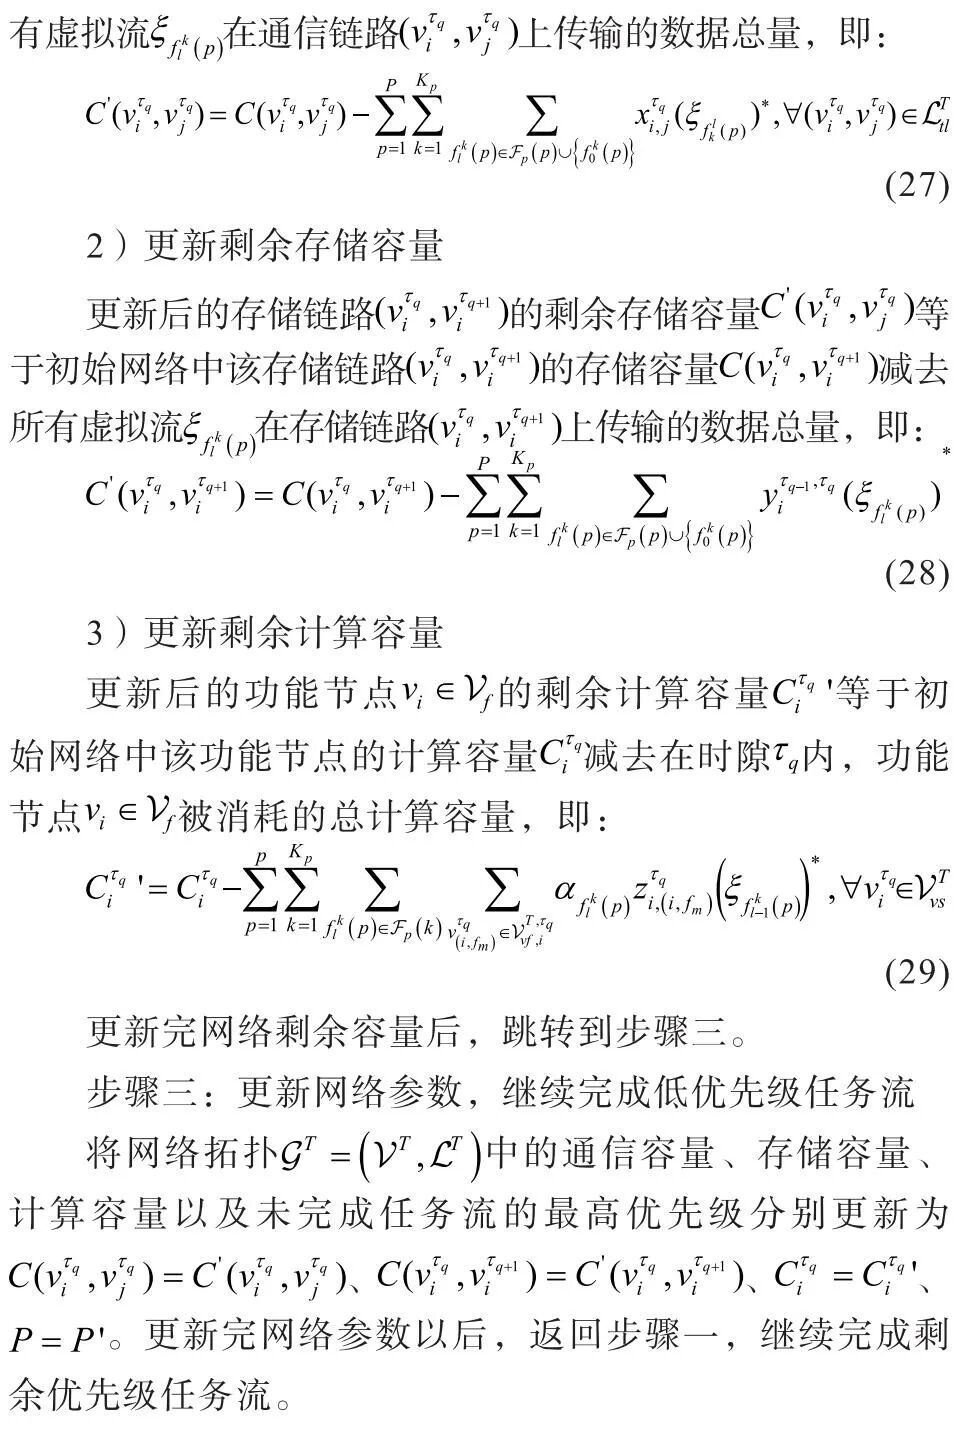 有虚拟流$\xi_{f_l^k(p)}$在通信链路$(v_i^{\tau_q},v_j^{\tau_q})$上传输的数据总量，即：
$C'(v_i^{\tau_q},v_j^{\tau_q})=C(v_i^{\tau_q},v_j^{\tau_q})-\sum_{p=1}^{P}\sum_{k=1}^{K_p}\sum_{f_l^k(p)\in\mathcal{F}_p(p)\cup\{f_0^k(p)\}}x_{i,j}^{\tau_q}(\xi_{f_k^l(p)})^*,\forall(v_i^{\tau_q},v_j^{\tau_q})\in\mathcal{L}_{tl}^T$
(27)
2）更新剩余存储容量
更新后的存储链路$(v_i^{\tau_q},v_i^{\tau_{q+1}})$的剩余存储容量$C'(v_i^{\tau_q},v_j^{\tau_q})$等
于初始网络中该存储链路$(v_i^{\tau_q},v_i^{\tau_{q+1}})$的存储容量$C(v_i^{\tau_q},v_i^{\tau_{q+1}})$减去
所有虚拟流$\xi_{f_l^k(p)}$在存储链路$(v_i^{\tau_q},v_i^{\tau_{q+1}})$上传输的数据总量，即：
$C'(v_i^{\tau_q},v_i^{\tau_{q+1}})=C(v_i^{\tau_q},v_i^{\tau_{q+1}})-\sum_{p=1}^{P}\sum_{k=1}^{K_p}\sum_{f_l^k(p)\in\mathcal{F}_p(p)\cup\{f_0^k(p)\}}y_i^{\tau_{q-1},\tau_q}(\xi_{f_l^k(p)})^*$
(28)
3）更新剩余计算容量
更新后的功能节点$v_i\in\mathcal{V}_f$的剩余计算容量$C_i^{\tau_q}{}'$等于初
始网络中该功能节点的计算容量$C_i^{\tau_q}$减去在时隙$\tau_q$内，功能
节点$v_i\in\mathcal{V}_f$被消耗的总计算容量，即：
$C_i^{\tau_q}{}'=C_i^{\tau_q}-\sum_{p=1}^{p}\sum_{k=1}^{K_p}\sum_{f_l^k(p)\in\mathcal{F}_p(k)}\sum_{v_{(i,f_m)}^{\tau_q}\in\mathcal{V}_{vf,i}^{T,\tau_q}}\alpha_{f_l^k(p)}z_{i,(i,f_m)}^{\tau_q}\left(\xi_{f_{l-1}^k(p)}\right)^*,\forall v_i^{\tau_q}\in\mathcal{V}_{vs}^T$
(29)
更新完网络剩余容量后，跳转到步骤三。
步骤三：更新网络参数，继续完成低优先级任务流
将网络拓扑$\mathcal{G}^T=(\mathcal{V}^T,\mathcal{L}^T)$中的通信容量、存储容量、
计算容量以及未完成任务流的最高优先级分别更新为
$C(v_i^{\tau_q},v_j^{\tau_q})=C'(v_i^{\tau_q},v_j^{\tau_q})$、$C(v_i^{\tau_q},v_i^{\tau_{q+1}})=C'(v_i^{\tau_q},v_i^{\tau_{q+1}})$、$C_i^{\tau_q}=C_i^{\tau_q}{}'$、
$P=P'$。更新完网络参数以后，返回步骤一，继续完成剩
余优先级任务流。